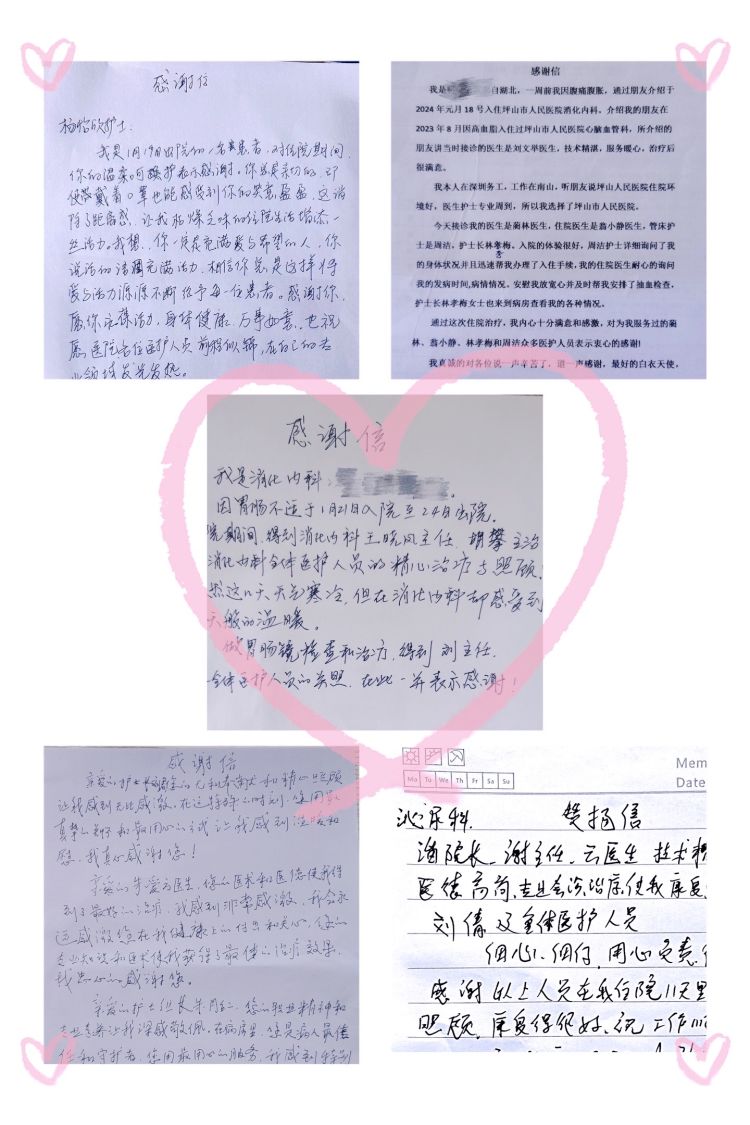 感谢信
杨怡欣护士:
我是1月19日出院的一名患者,对住院期间
你的温柔呵护表示感谢。你总是亲切的,即
使带戴着口罩也能感觉到你的笑意盈盈,这消
除了距离感,让我枯燥乏味的住院生活增添一
丝活力。我想,你一定是充满爱与希望的人,你
说话的语调充满活力,相信你总是这样将
爱与活力源源不断给予每一位患者。感谢你,
愿你永葆活力,身体健康,万事如意,也祝
愿医院各位医护人员前程似锦,在自己的专
业领域发光发热。
感谢信
我是 自湖北,一周前我因腹痛腹胀,通过朋友介绍于
2024年元月18号入住坪山市人民医院消化内科。介绍我的朋友在
2023年8月因高血脂入住过坪山市人民医院心脑血管科,所介绍的
朋友讲当时接诊的医生是刘文举医生,技术精湛,服务暖心,治疗后
很满意。
我本人在深圳务工,工作在南山,听朋友说坪山市人民医院住院环
境好,医生护士专业周到,所以我选择了坪山市人民医院。
今天接诊我的医生是蔺林医生,住院医生是翁小静医生,管床护
士是周洁,护士长林孝梅。入院的体验很好,周洁护士详细询问了我
的身体状况并且迅速帮我办理了入住手续,我的住院医生耐心的询问
我的发病时间,病情情况,安慰我放宽心并及时帮我安排了抽血检查,
护士长林孝梅女士也来到病房查看我的各种情况。
通过这次住院治疗,我内心十分满意和感激,对为我服务过的蔺
林、翁小静、林孝梅和周洁众多医护人员表示衷心的感谢!
我真诚的对各位说一声辛苦了,道一声感谢,最好的白衣天使,
感谢信
我是消化内科
因胃肠不适于1月21日入院至24日出院。
院期间,得到消化内科王晓凤主任,胡攀主治
消化内科全体医护人员的精心治疗与照顾,
然这几天天气寒冷,但在消化内科却感受到
天般的温暖。
做胃肠镜检查和治疗,得到刘主任,
全体医护人员的关照,在此一并表示感谢!
感谢信
亲爱的护士 的无私奉献和精心照顾
让我感到无比感激,在这特殊的时刻,您用最
真挚的 和最用心的方式让我感到温暖和
慰,我真心感谢您!
亲爱的 医生,您的医术和医德使我得
到了最好的治疗,我感到非常感激,我会永
远感激您在我健康上的付出和关心,您的
专业知识和医术使我获得了最佳的治疗效果,
我衷心的感谢您。
亲爱的护士组长 ,您的职业精神和
专业素养让我深感敬佩,在病房里,您是病人最信
任和守护者,您用最用心的服务,我感到特别
Mem
Date
Mo Tu We Th Fr Sa Su
泌尿科 赞扬信
潘院长、谢主任、云医生 技术精
医德高尚, 会诊治疗使我康复
刘倩及全体医护人员
细心、细付,用心负责,
感谢以上人员在我住院11天里
照顾,康复得很好,祝工作顺